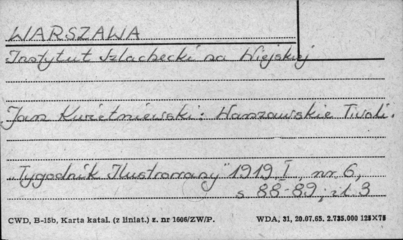 WARSZAWA
Instytut Szlachecki na Wiejskiej
Jan Kwietniewski: Warszawskie Tivoli.
"Tygodnik Ilustrowany" 1919 I, nr 6,
s 88-89; il. 3
CWD, B-15b, Karta katal. (z liniat.) z. nr 1606/ZW/P. WDA, 31, 20.07.65. 2.735.000 125X75